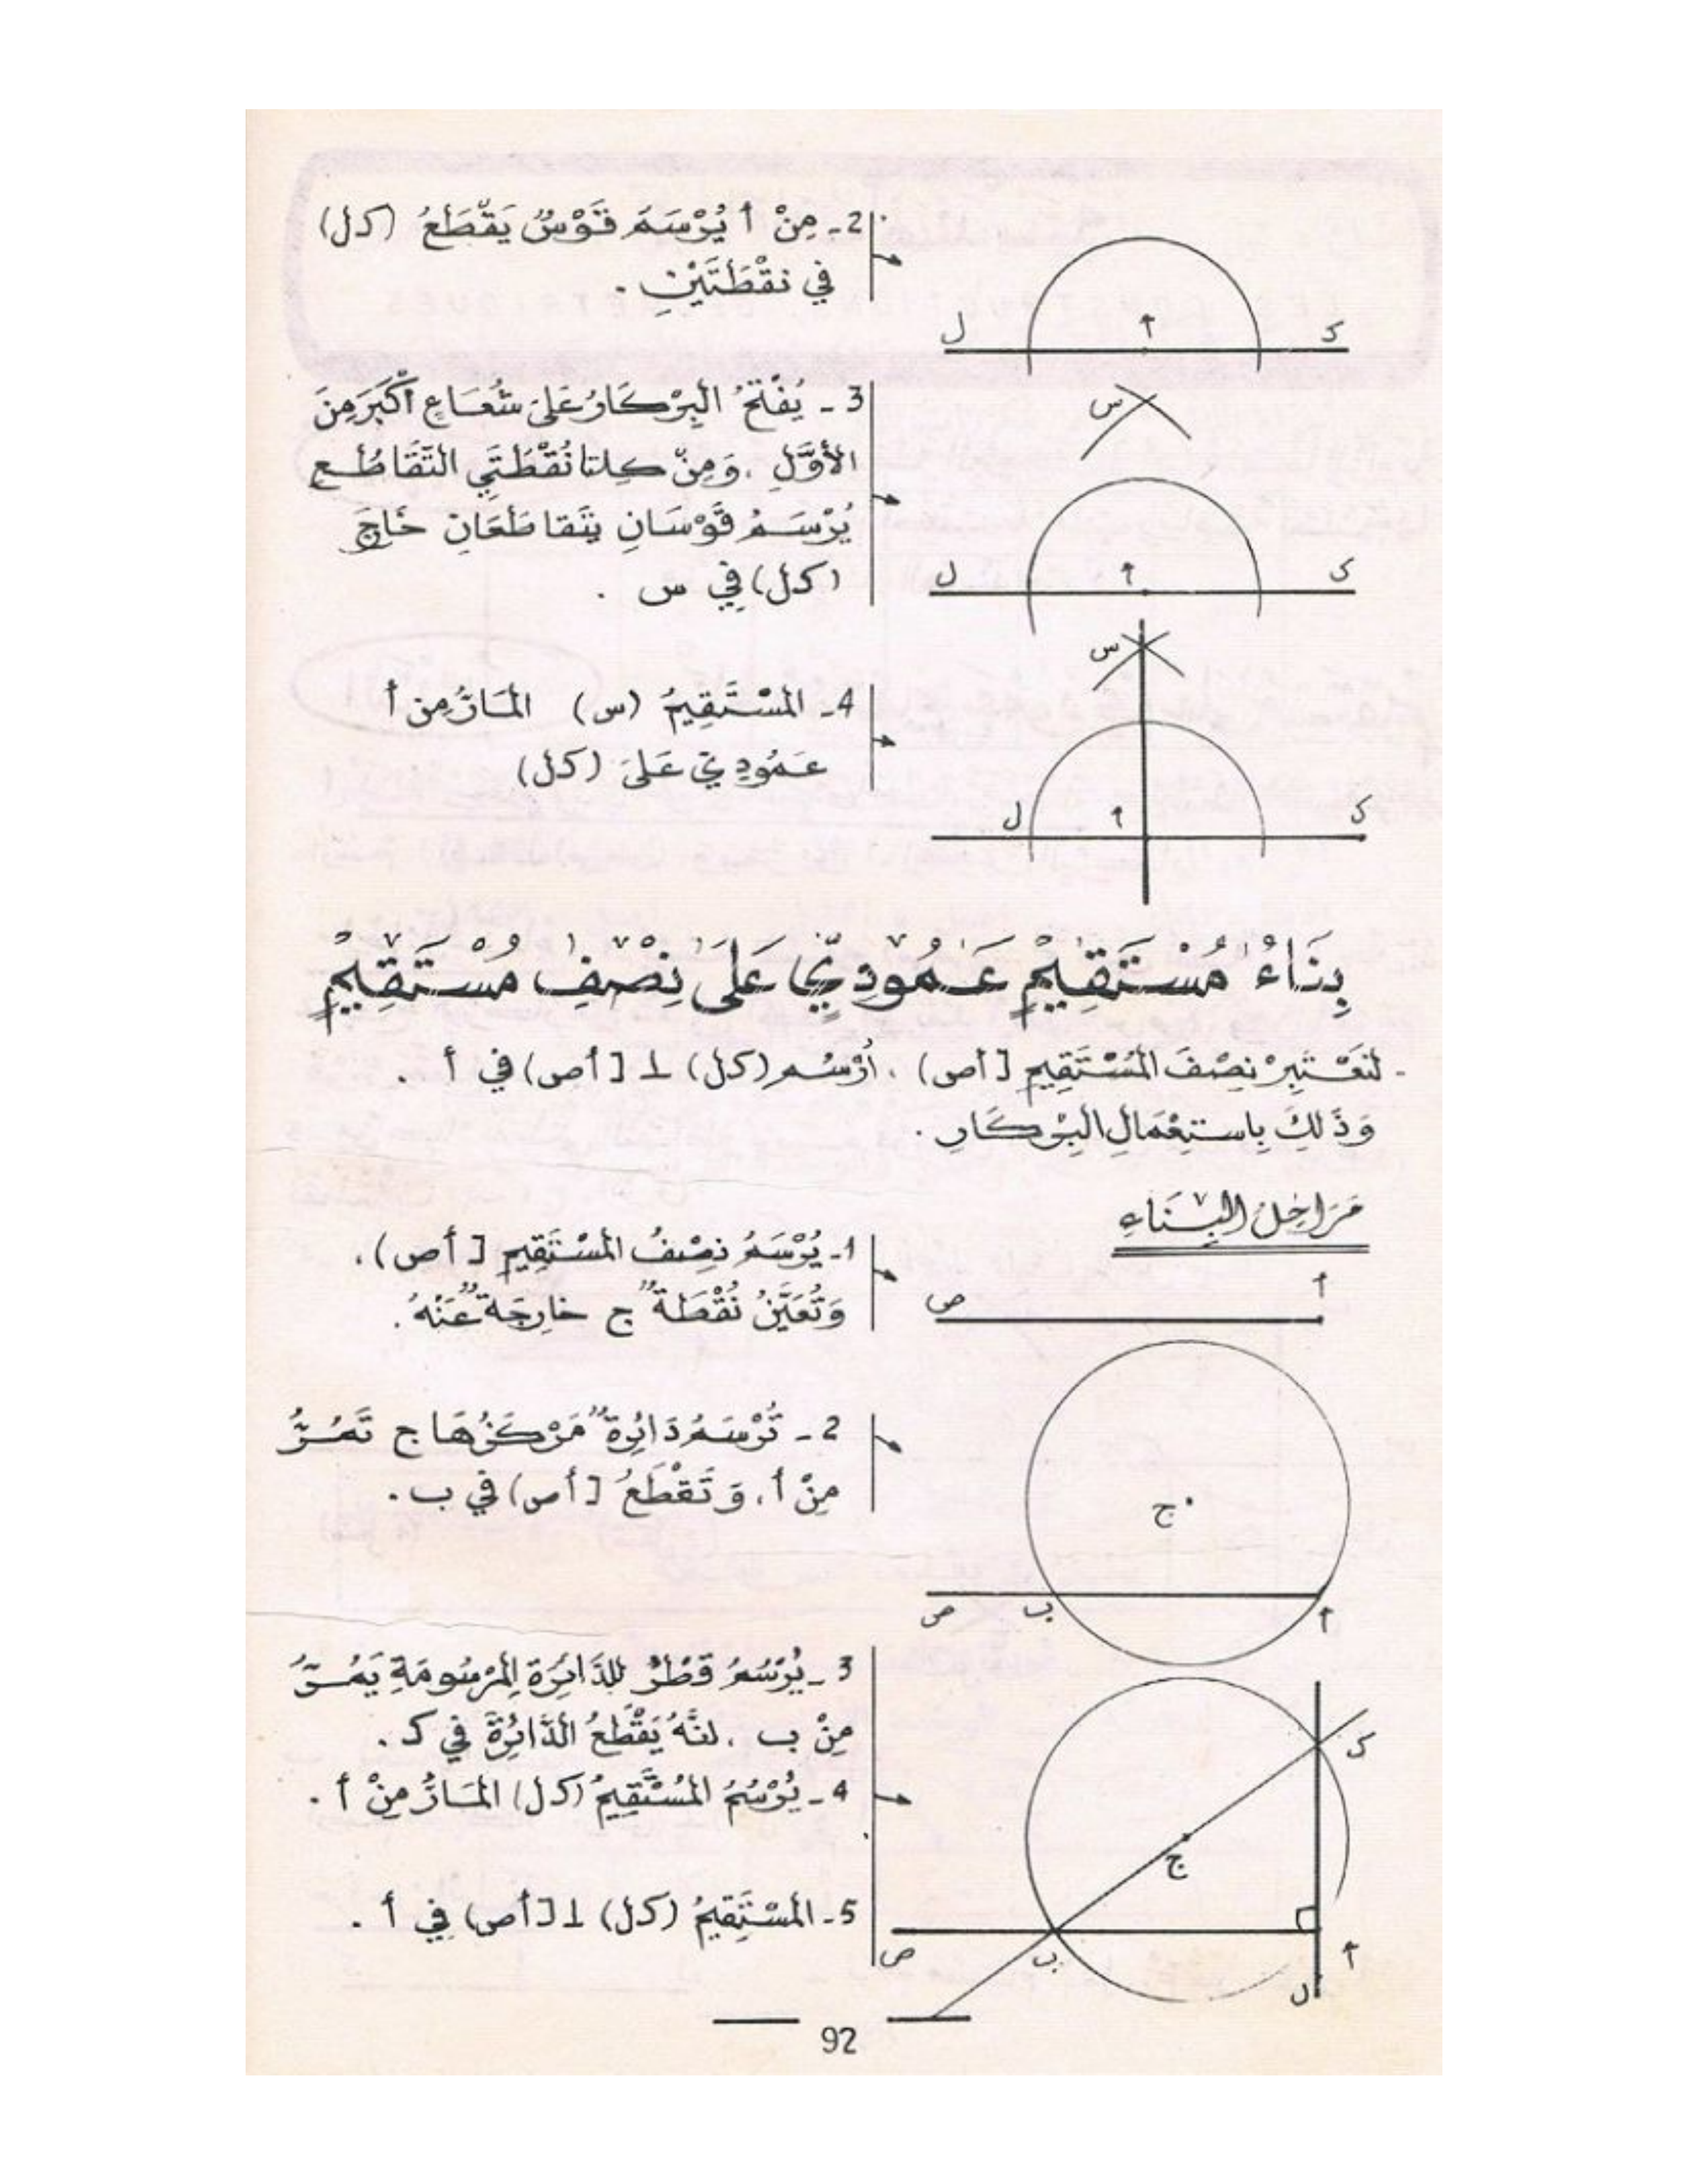 2- مِنْ أ يُرْسَمَ قَوْسٌ يَقْطَعُ (كل)
في نقْطَتَيْنِ .
ل أ ك
3 - يُفْتَحُ البِرْكَارُ عَلَى شُعَاعٍ أَكْبَرَ مِنَ
الأوَّلِ ، وَمِنْ كِلتا نُقْطَتَيِ التَّقَاطُعِ
يُرْسَمُ قَوْسَانِ يتَقاطَعَانِ خَاجَ
(كل) فِي س .
س
ل أ ك
4- المُسْتَقِيمُ (س) المَارُّ مِن أ
عَمُودِيّ عَلَى (كل)
س
ل أ ك
بِنَاءُ مُسْتَقِيمٍ عَمُودِيٍّ عَلَى نِصْفِ مُسْتَقِيمٍ
- لنَعْتَبِرْ نِصْفَ المُسْتَقِيمِ [أص) ، أُرْسُم (كل) ⊥ [أص) في أ .
وَذَلِكَ بِاستِعْمَالِ البِرْكَارِ .
مَرَاحِلُ البِنَاءِ
1- يُرْسَمُ نِصْفُ المُسْتَقِيمِ [أص) ،
وَتُعَيَّنُ نُقْطَةٌ ج خارِجَةٌ عَنْهُ .
ص أ
2 - تُرْسَمُ دَائِرةٌ مَرْكَزُهَا ج تَمُرُّ
مِنْ أ ، وَتَقْطَعُ [أص) في ب .
ج
ص ب أ
3 - يُرْسَمُ قُطْرٌ للدَّائِرَةِ المَرْسُومَةِ يَمُرُّ
مِنْ ب ، إنَّهُ يَقْطَعُ الدَّائِرَةَ فِي ك .
4 - يُرْسَمُ المُسْتَقِيمُ (كل) المَارُّ مِنْ أ .
5- المُسْتَقِيمُ (كل) ⊥ [أص) فِي أ .
ك
ج
ص ب أ
ل
92